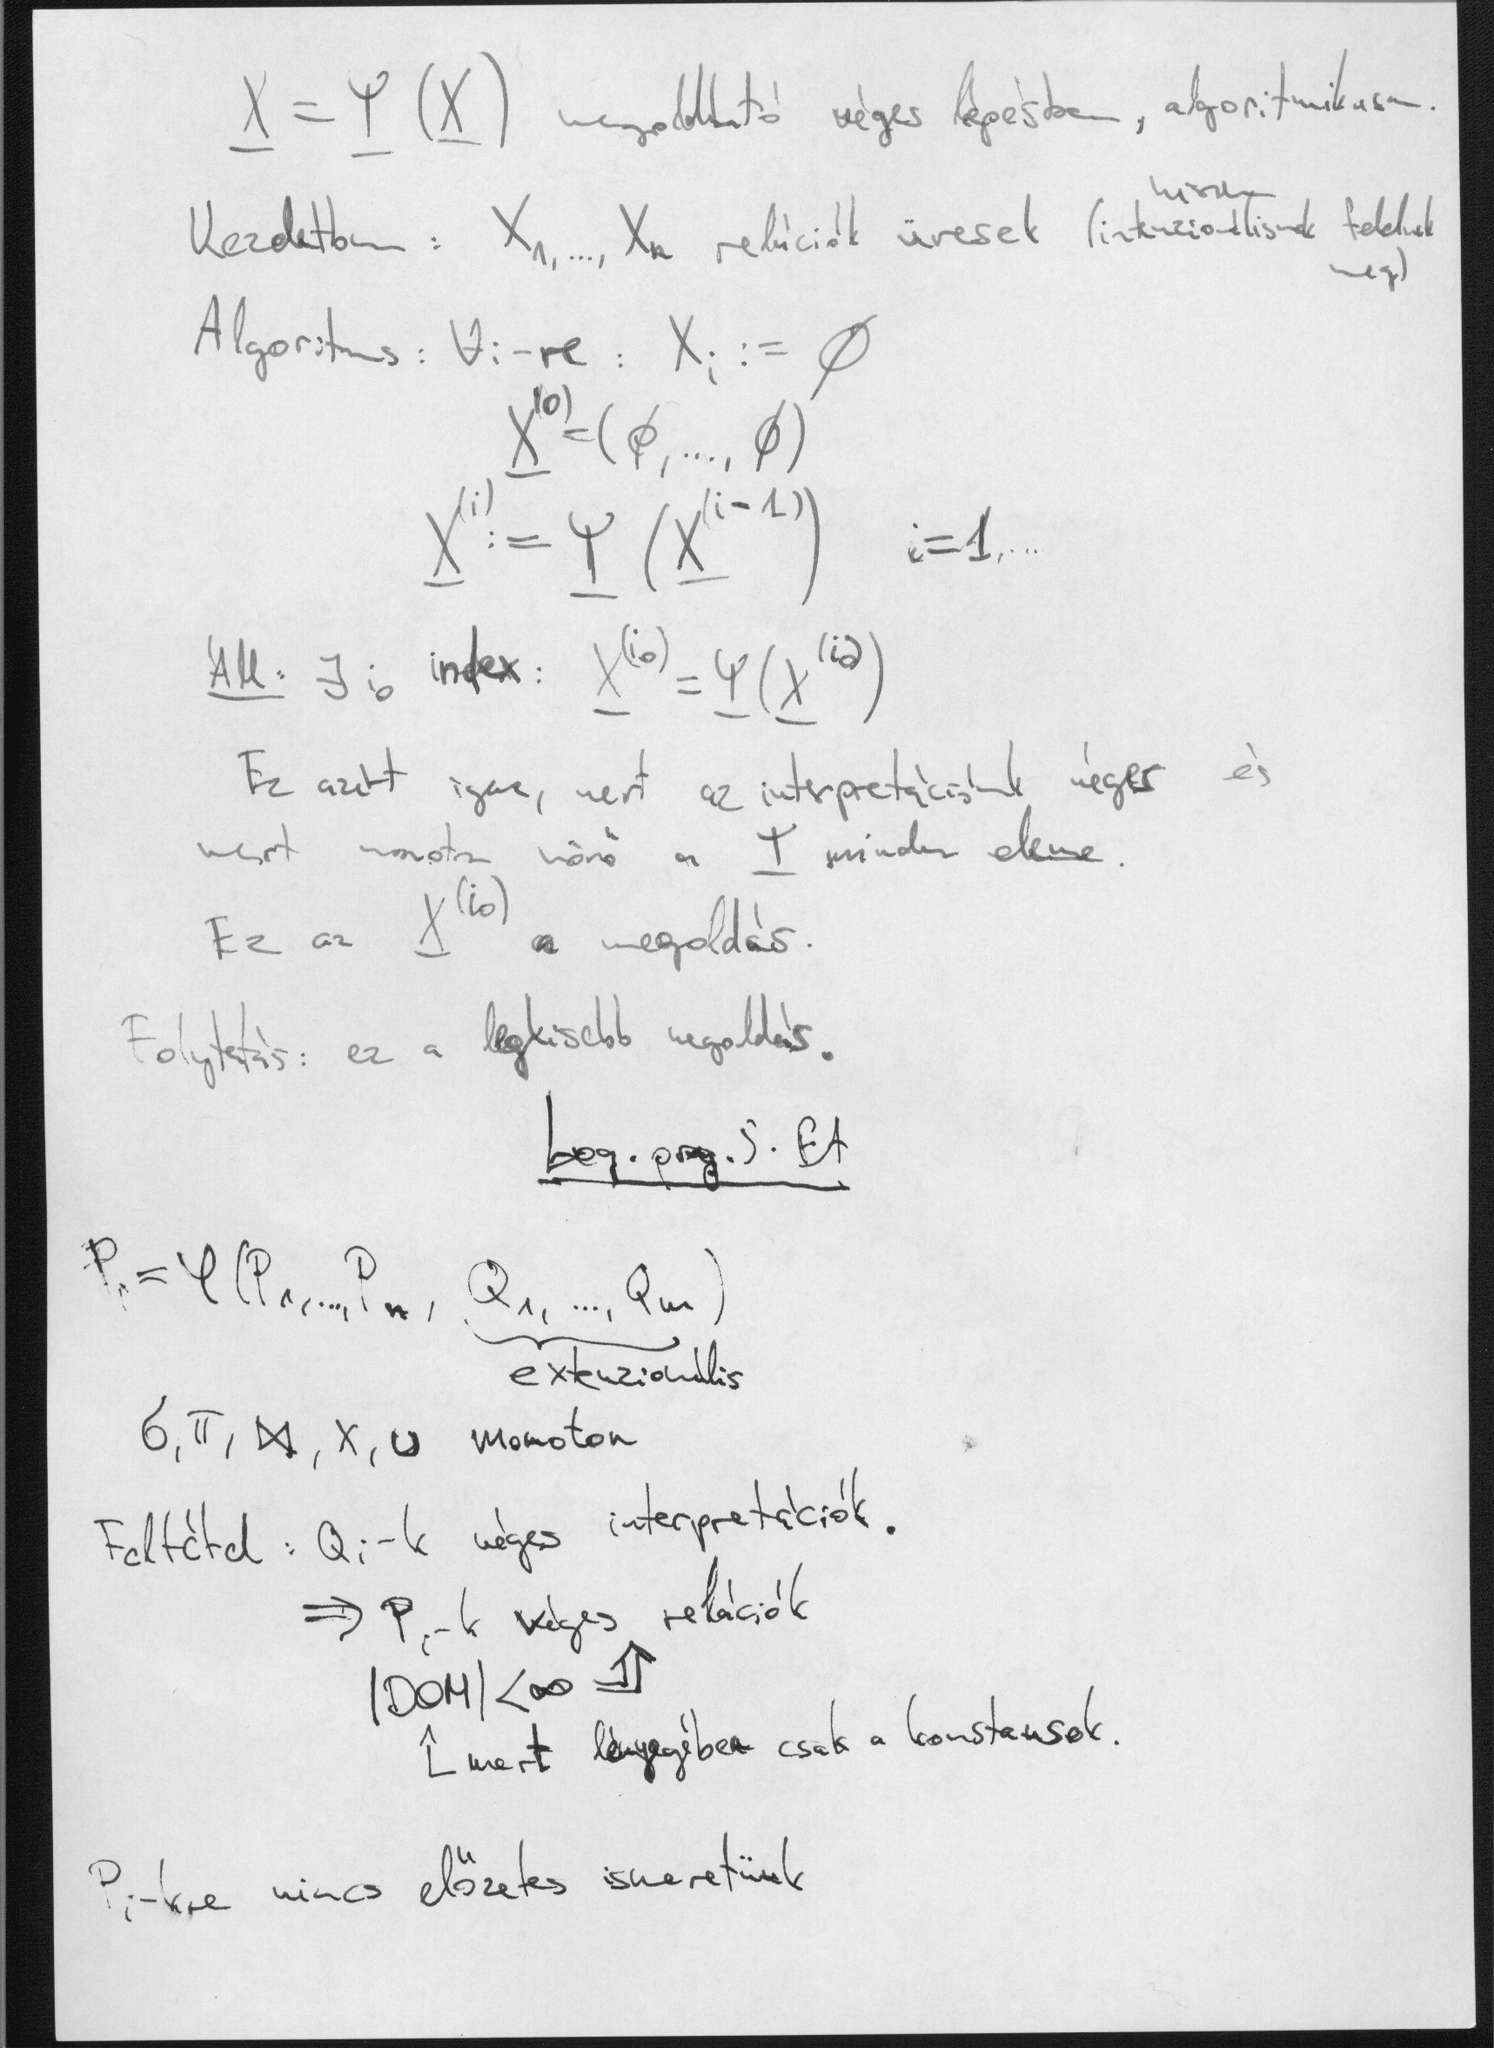 X = Ψ (X) megoldható véges lépésben, algoritmikusan.
hiszen
Kezdetben : X1, ..., Xn relációk üresek (intenzionálisnak felelnek
meg)
Algoritmus : ∀i-re : Xi := ∅
X^(0) = (∅, ..., ∅)
X^(i) := Ψ (X^(i-1)) i=1,...
Áll: ∃ i0 index: X^(i0) = Ψ(X^(i0))
Ez azért igaz, mert az interpretációnk véges és
mert monoton növő a Ψ minden eleme.
Ez az X^(i0) a megoldás.
Folytatás: ez a legkisebb megoldás.
Log. prog. 5. EA
Pi = φ (P1, ..., Pn, Q1, ..., Qm)
extenzionális
σ, π, ⋈, ×, ∪ monoton
Feltétel : Qi-k véges interpretációk.
⇒ Pi-k véges relációk
|DOM| < ∞ ⇑
↑ mert lényegében csak a konstansok.
Pi-kre nincs előzetes ismeretünk